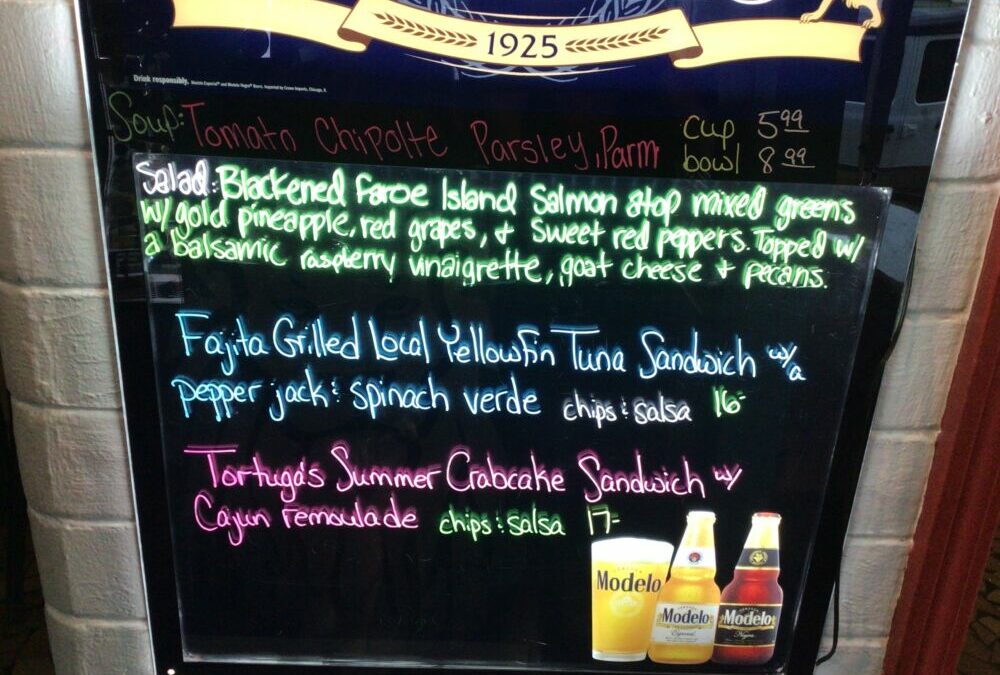 1925
Drink responsibly. Modelo Especial® and Modelo Negra® Beers. Imported by Crown Imports, Chicago, IL
Soup: Tomato Chipolte Parsley, Parm cup 5.99
bowl 8.99
Salad: Blackened Faroe Island Salmon atop mixed greens
w/ gold pineapple, red grapes, & sweet red peppers. Topped w/
a balsamic raspberry vinaigrette, goat cheese + pecans.
Fajita Grilled Local Yellowfin Tuna Sandwich w/a
pepper jack & spinach verde chips & salsa 16-
Tortuga's Summer Crabcake Sandwich w/
Cajun remoulade chips & salsa 17-
Modelo
Modelo
Especial
Modelo
Negra